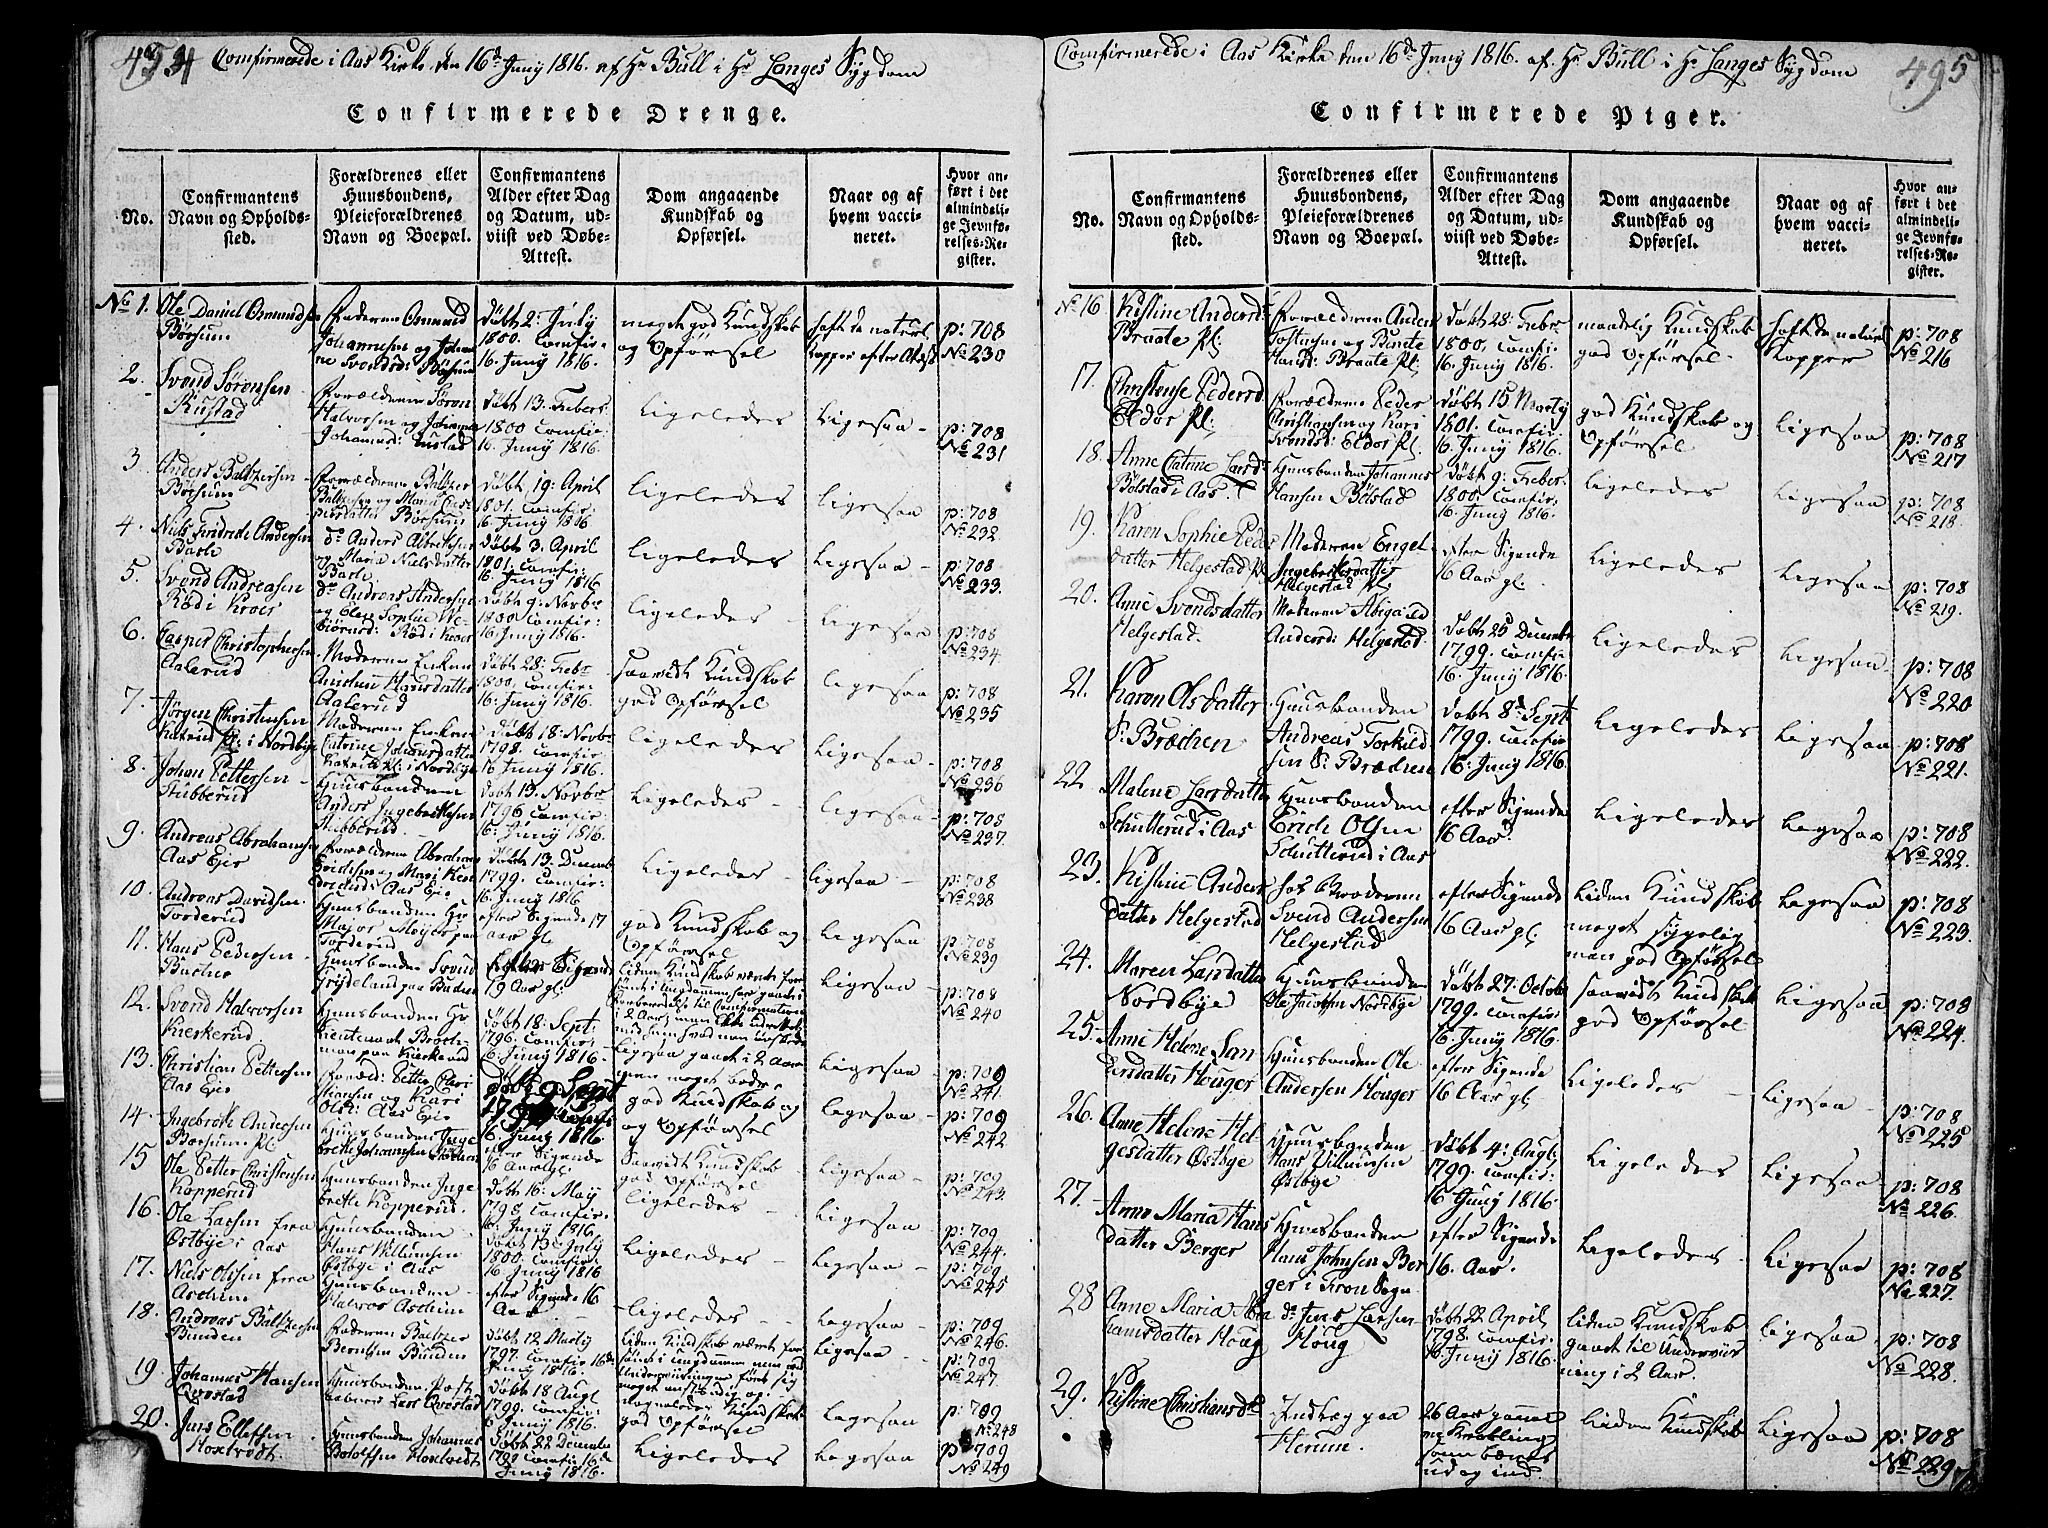 494 Confirmerede i Aas Kirke den 16d Juny 1816. af Hr Bull i Hr Langes Sygdom
Confirmerede Drenge.
No.
Confirmantens
Navn og Opholds-
sted.
Forældrenes eller
Huusbondens,
Pleieforældrenes
Navn og Boepæl.
Confirmantens
Alder efter Dag
og Datum, ud-
viist ved Døbe-
Attest.
Dom angaaende
Kundskab og
Opførsel.
Naar og af
hvem vacci-
neret.
Hvor an-
ført i det
almindeli-
ge Jevnfø-
relses-Re-
gister.
No 1.
Ole Daniel Osmundsen
Börsum
Faderen Osmund
Johannesen og Johan-
ne Svendsd: Börsum
döbt 2: July
1800. Comfir:
16. Juny 1816.
meget god Kundskab
og Opförsel
hafte naturl.
Kopper efter Attest
p: 708
No 230
2.
Svend Sörensen
Rustad
Forældrene Sören
Halvorsen og Johanne
Johannesd: Rustad
döbt 13. Febr:
1800 Comfir:
16. Juny 1816.
Ligeledes
Ligesaa
p: 708
No 231
3.
Anders Baltzersen
Börsum
Forældrene Baltzer
Baltzersen og Maria
Börsum
döbt 19: April
1801. Comfir:
16. Juny 1816
Ligeledes
Ligesaa
p: 708
No 232
4.
Niels Fredrik Andersen
do Anders
og Maria Nielsdatter
döbt 3. April
1801. Comfir:
16. Juny 1816
Ligeledes
Ligesaa
p: 708
No 233.
5.
Svend Andreasen
Röd i Kroer
do Andreas Andersen
Röd i Kroer
döbt 9: Novbr
1800 Comfir:
16 Juny 1816.
Ligeledes
Ligesaa
p: 708
No 234.
6.
Casper Christophersen
Aalerud
Moderen Enken
Hansdatter
Aalerud
döbt 28: Febr
1800. Comfir:
16. Juny 1816.
saavidt Kundskab
god Opförsel
Ligesaa
p: 708
No 235
7.
Jörgen Christensen
pl: i Nordbye
Moderen Enken
Catrine Johansdatter
pl: i Nordbye
döbt 18: Novbr
1798. Comfir:
16 Juny 1816.
Ligeledes
Ligesaa
p: 708
No 236
8.
Johan Pettersen
Stubberud
Huusbonden
Anders Ingebrethsen
Stubberud
döbt 13. Novbr
1796 Comfir:
16. Juny 1816.
Ligeledes
Ligesaa
p: 708
No 237.
9.
Andreas Abrahamsen
Aas Eie
Forældrene Abraham
og Mari
Aas Eie
döbt 13. Decemb:
1799. Comfir:
16. Juny 1816
Ligeledes
Ligesaa
p: 708
No 238
10.
Andreas Davidsen
Torderud
Huusbonden Hr
Major
Torderud
efter Sigende 17
aar gl.
god Kundskab og
Opförsel
Ligesaa
p: 708
No 239
11.
Hans Pedersen
Huusbonden Svend
efter Sigende
19 Aar gl:
liden Kundskab
Ligesaa
p: 708
No 240
12.
Svend Halvorsen
Kierkerud
Huusbonden Hr
Lieutenant
paa Kierkerud
döbt 18: Sept:
1796. Comfir:
16. Juny 1816.
Ligesaa gaaet i 2 Aar
men meget bedre
Ligesaa
p: 709
No 241.
13.
Christian Pettersen
Aas Eie
Foræld: Petter
og Kari
Olsd: Aas Eie
16. Juny 1816
god Kundskab og
og Opförsel
Ligesaa
p: 709
No 242
14.
Ingebret Andersen
Börsum pl.
Huusbonden Inge-
breth Johannesen
efter Sigende
16 Aar gl:
Saavidt Kundskab
god Opförsel
Ligesaa
p: 709
No 243.
15
Ole Petter Christensen
Kopperud
Huusbonden Inge-
breth Kopperud.
döbt 16: May
1798 Comfir:
16. Juny 1816
Ligeledes
Ligesaa
p: 709
No 244.
16.
Ole Larsen fra
Östbye i Aas
Huusbonden
Hans Willumsen
Östbye i Aas
döbt 13: July
1800. Comfir:
16 Juny 1816
Ligeledes
Ligesaa
p: 709
No 245
17.
Niels Olsen fra
Huusbonden
Halvor
efter Sigende 16
Aar
Ligeledes
Ligesaa
p: 709
No 246.
18.
Andreas Baltzersen
Bunden
Faderen Baltzer
Berntsen Bunden
döbt 12 Marty
1797. Comfir 16de
Juny 1816.
liden Kundskab
Ligesaa
p: 709
No 247.
19.
Johannes Hansen
Qvestad
Huusbonden
Lars Qvestad
döbt 18 Augl
1799. Comfir:
16 Juny 1816.
Kundskab
god Opförsel
Ligesaa
p: 709
No 248
20.
Jens Ellefsen
Holstvedt.
Huusbonden Johannes
döbt 22 Decembr
1799 Comfir 16de
Juny 1816.
Ligeledes
Ligesaa
p: 709
No 249
Comfirmerede i Aas Kirke den 16d Juny 1816. af Hr Bull i Hr Langes Sygdom 495
Confirmerede Piger.
No.
Confirmantens
Navn og Opholds-
sted.
Forældrenes eller
Huusbondens,
Pleieforældrenes
Navn og Boepæl.
Confirmantens
Alder efter Dag
og Datum, ud-
viist ved Døbe-
Attest.
Dom angaaende
Kundskab og
Opførsel.
Naar og af
hvem vacci-
neret.
Hvor an-
ført i det
almindeli-
ge Jevnfø-
relses-Re-
gister.
No 16
Kistine Andersd:
Braate pl:
Forældrene Anders
og Birete
Hansd: Braate pl:
döbt 28: Febr
1800. Comfir:
16. Juny 1816.
maadelig Kundskab
god Opförsel
hafte de naturl
Kopper
p: 708
No 216
17.
Christense Pedersd
Eldor pl:
Forældrene Peder
Christiansen og Kari
Svendsd: Eldor pl.
döbt 15 Marty
1801. Comfir:
16. Juny 1816.
god Kundskab og
Opförsel
Ligesaa
p: 708
No 217
18.
Anne Catrine Larsdr
Bölstad i Aas.
Huusbonden Johannes
Hansen Bölstad
döbt 9: Febr:
1800. Comfir:
16. Juny 1816.
Ligeledes
Ligesaa
p: 708
No 218.
19.
Karen Sophie Peders
datter Helgestad pl.
Moderen Engel
Ingebrethsdatter
Helgestad pl:
efter Sigende
16 Aar gl.
Ligeledes
Ligesaa
p: 708
No 219.
20.
Anne Svendsdatter
Helgestad.
Moderen Abigael
Andersd: Helgestad.
döbt 25 Decembr
1799. Comfir:
16. Juny 1816.
Ligeledes
Ligesaa
p: 708
No 220
21.
Karen Olsdatter
S: Bræcken
Huusbonden
Andreas Torkild-
sen S: Bræcken
döbt 8d Sept
1799. Comfir:
16. Juny 1816.
Ligeledes
Ligesaa
p: 708
No 221.
22
Malene Larsdatter
Schutterud i Aas
Huusbonden
Erich Olsen
Schutterud i Aas
efter Sigende
16 Aar
Ligeledes
Ligesaa
p: 708
No 222.
23.
Kistine Anders
datter Helgestad
hos Broderen
Svend Andersen
Helgestad
efter Sigende
16 Aar gl:
Liden Kundskab
meget sygelig
men god Opförsel
Ligesaa
p: 708
No 223.
24.
Maren Larsdatter
Nordbye
Huusbonden
Ole Jacobsen Nordbye
döbt 27. Octob
1799. Comfir
16. Juny 1816.
saavidt Kundskab
god Opförsel
Ligesaa
p: 708
No 224.
25.
Anne Helene
datter Houger
Huusbonden Ole
Andersen Houger
efter Sigende
16 Aar gl:
Ligeledes
Ligesaa
p: 708
No 225
26.
Anne Helene Hel-
gesdatter Östbye
Huusbonden
Hans Villumsen
Östbye
döbt 4: Augl
1799. Comfir:
16 Juny 1816.
Ligeledes
Ligesaa
p: 708
No 226.
27.
Anne Maria Hans
datter Berger
Huusbonden
Hans Johnsen Ber-
ger i Kroer Sogn
efter Sigende
16. Aar.
Ligeledes
Ligesaa
p: 708
No 227.
28
Anne Maria Abra
hamsdatter Houg
do Jens Larsen
Houg
döbt 22 April
1798. Comfir:
16 Juny 1816.
liden Kundskab
gaaet til Underviis
ning i 2 Aar.
Ligesaa
p: 708
No 228.
29.
Kistine Christiansdr
Indlæg paa
Herum.
26 Aar gammel
en Krøbling
som bæres
ud og ind
Liden Kundskab
Ligesaa
p: 708
No 229